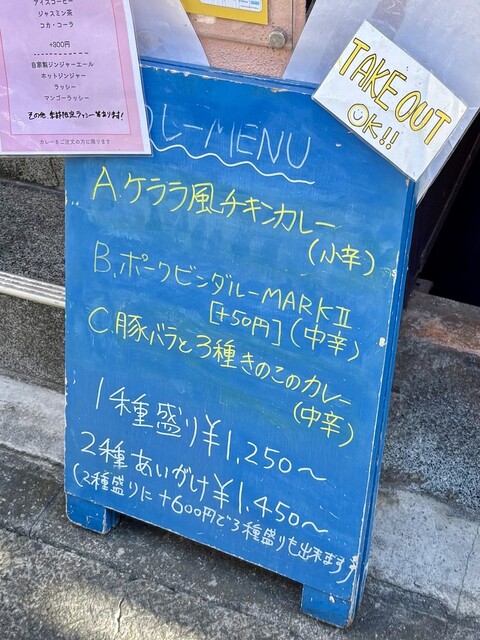 アイスコーヒー
ジャスミン茶
コカ・コーラ
+300円
自家製ジンジャーエール
ホットジンジャー
ラッシー
マンゴーラッシー
その他 季節限定ラッシーあります!
カレーをご注文の方に限ります
TAKE OUT
OK!!
レーMENU
A.ケララ風チキンカレー
(小辛)
B.ポークビンダルーMARKⅡ
[+50円](中辛)
C.豚バラと3種きのこのカレー
(中辛)
1種盛り¥1,250〜
2種あいがけ¥1,450〜
(2種盛りに+600円で3種盛りも出来ます)